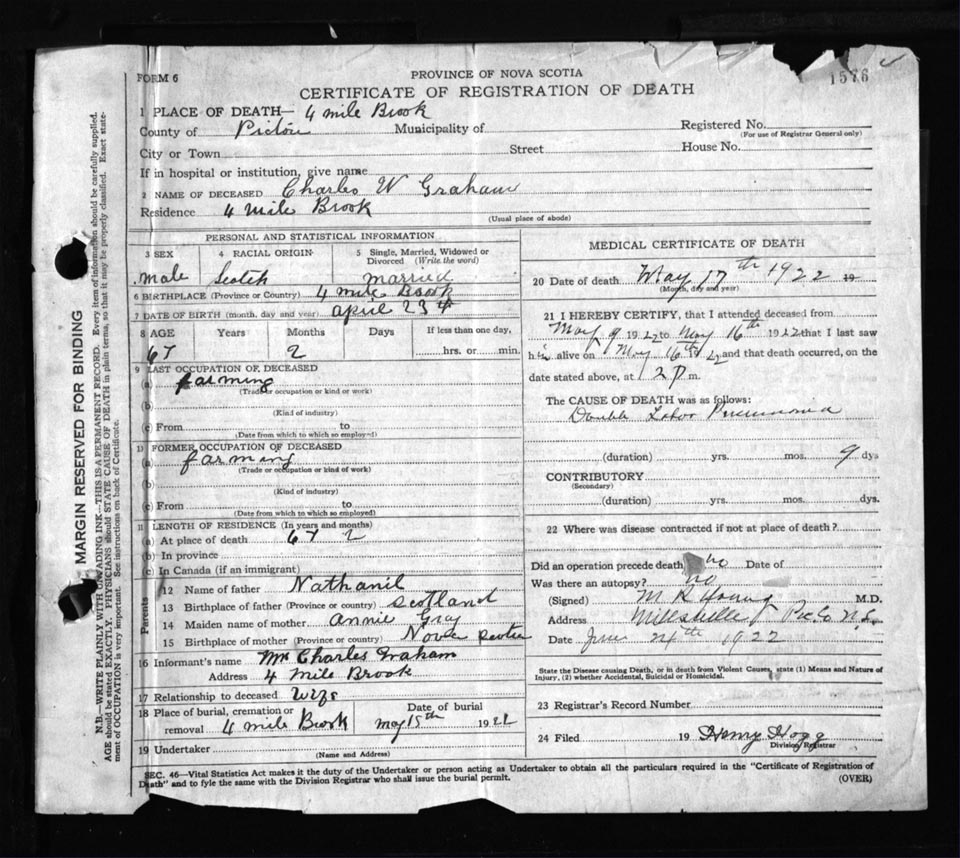 1576
FORM 6
PROVINCE OF NOVA SCOTIA
CERTIFICATE OF REGISTRATION OF DEATH
1 PLACE OF DEATH— 4 mile Brook
County of Pictou Municipality of Registered No.
(For use of Registrar General only)
City or Town Street House No.
If in hospital or institution, give name
2 NAME OF DECEASED Charles W Graham
Residence 4 mile Brook
(Usual place of abode)
PERSONAL AND STATISTICAL INFORMATION
3 SEX 4 RACIAL ORIGIN 5 Single, Married, Widowed or
Divorced (Write the word)
male Scotch married
6 BIRTHPLACE (Province or Country) 4 mile Brook
7 DATE OF BIRTH (month, day and year) april 23
8 AGE Years Months Days If less than one day,
67 2 hrs. or min.
9 LAST OCCUPATION OF DECEASED
(a) farming
(Trade or occupation or kind or work)
(b)
(Kind of industry)
(c) From to
(Date from which to which so employed)
10 FORMER OCCUPATION OF DECEASED
(a) farming
(Trade or occupation or kind of work)
(b)
(Kind of industry)
(c) From to
(Date from which to which so employed)
11 LENGTH OF RESIDENCE (In years and months)
(a) At place of death 67 2
(b) In province
(c) In Canada (if an immigrant)
Parents
12 Name of father Nathanil
13 Birthplace of father (Province or country) Scotland
14 Maiden name of mother annie Gray
15 Birthplace of mother (Province or country) Nova Scotia
16 Informant's name Mrs Charles Graham
Address 4 mile Brook
17 Relationship to deceased wife
18 Place of burial, cremation or removal 4 mile Brook Date of burial may 18th 1922
19 Undertaker
(Name and Address)
MEDICAL CERTIFICATE OF DEATH
20 Date of death May 17th 1922 19
(Month, day and year)
21 I HEREBY CERTIFY, that I attended deceased from
May 9 1922 to May 16th 1922 that I last saw
him alive on May 16th 22 and that death occurred, on the
date stated above, at 2 P m.
The CAUSE OF DEATH was as follows:
Double Lobar Pneumonia
(duration) yrs. mos. 9 dys
CONTRIBUTORY
(Secondary)
(duration) yrs. mos. dys.
22 Where was disease contracted if not at place of death?
Did an operation precede death no Date of
Was there an autopsy? no
(Signed) M R Young M.D.
Address Millsville Pic. Co N.S.
Date June 24th 1922
State the Disease causing Death, or in death from Violent Causes, state (1) Means and Nature of
Injury, (2) whether Accidental, Suicidal or Homicidal.
23 Registrar's Record Number
24 Filed 19 Henry Hogg
Division Registrar
SEC. 46—Vital Statistics Act makes it the duty of the Undertaker or person acting as Undertaker to obtain all the particulars required in the "Certificate of Registration of
Death" and to fyle the same with the Division Registrar who shall issue the burial permit.
(OVER)
MARGIN RESERVED FOR BINDING
N.B.—WRITE PLAINLY WITH UNFADING INK—THIS IS A PERMANENT RECORD. Every item of information should be carefully supplied.
AGE should be stated EXACTLY. PHYSICIANS should STATE CAUSE OF DEATH in plain terms, so that it may be properly classified. Exact state-
ment of OCCUPATION is very important. See instructions on back of Certificate.